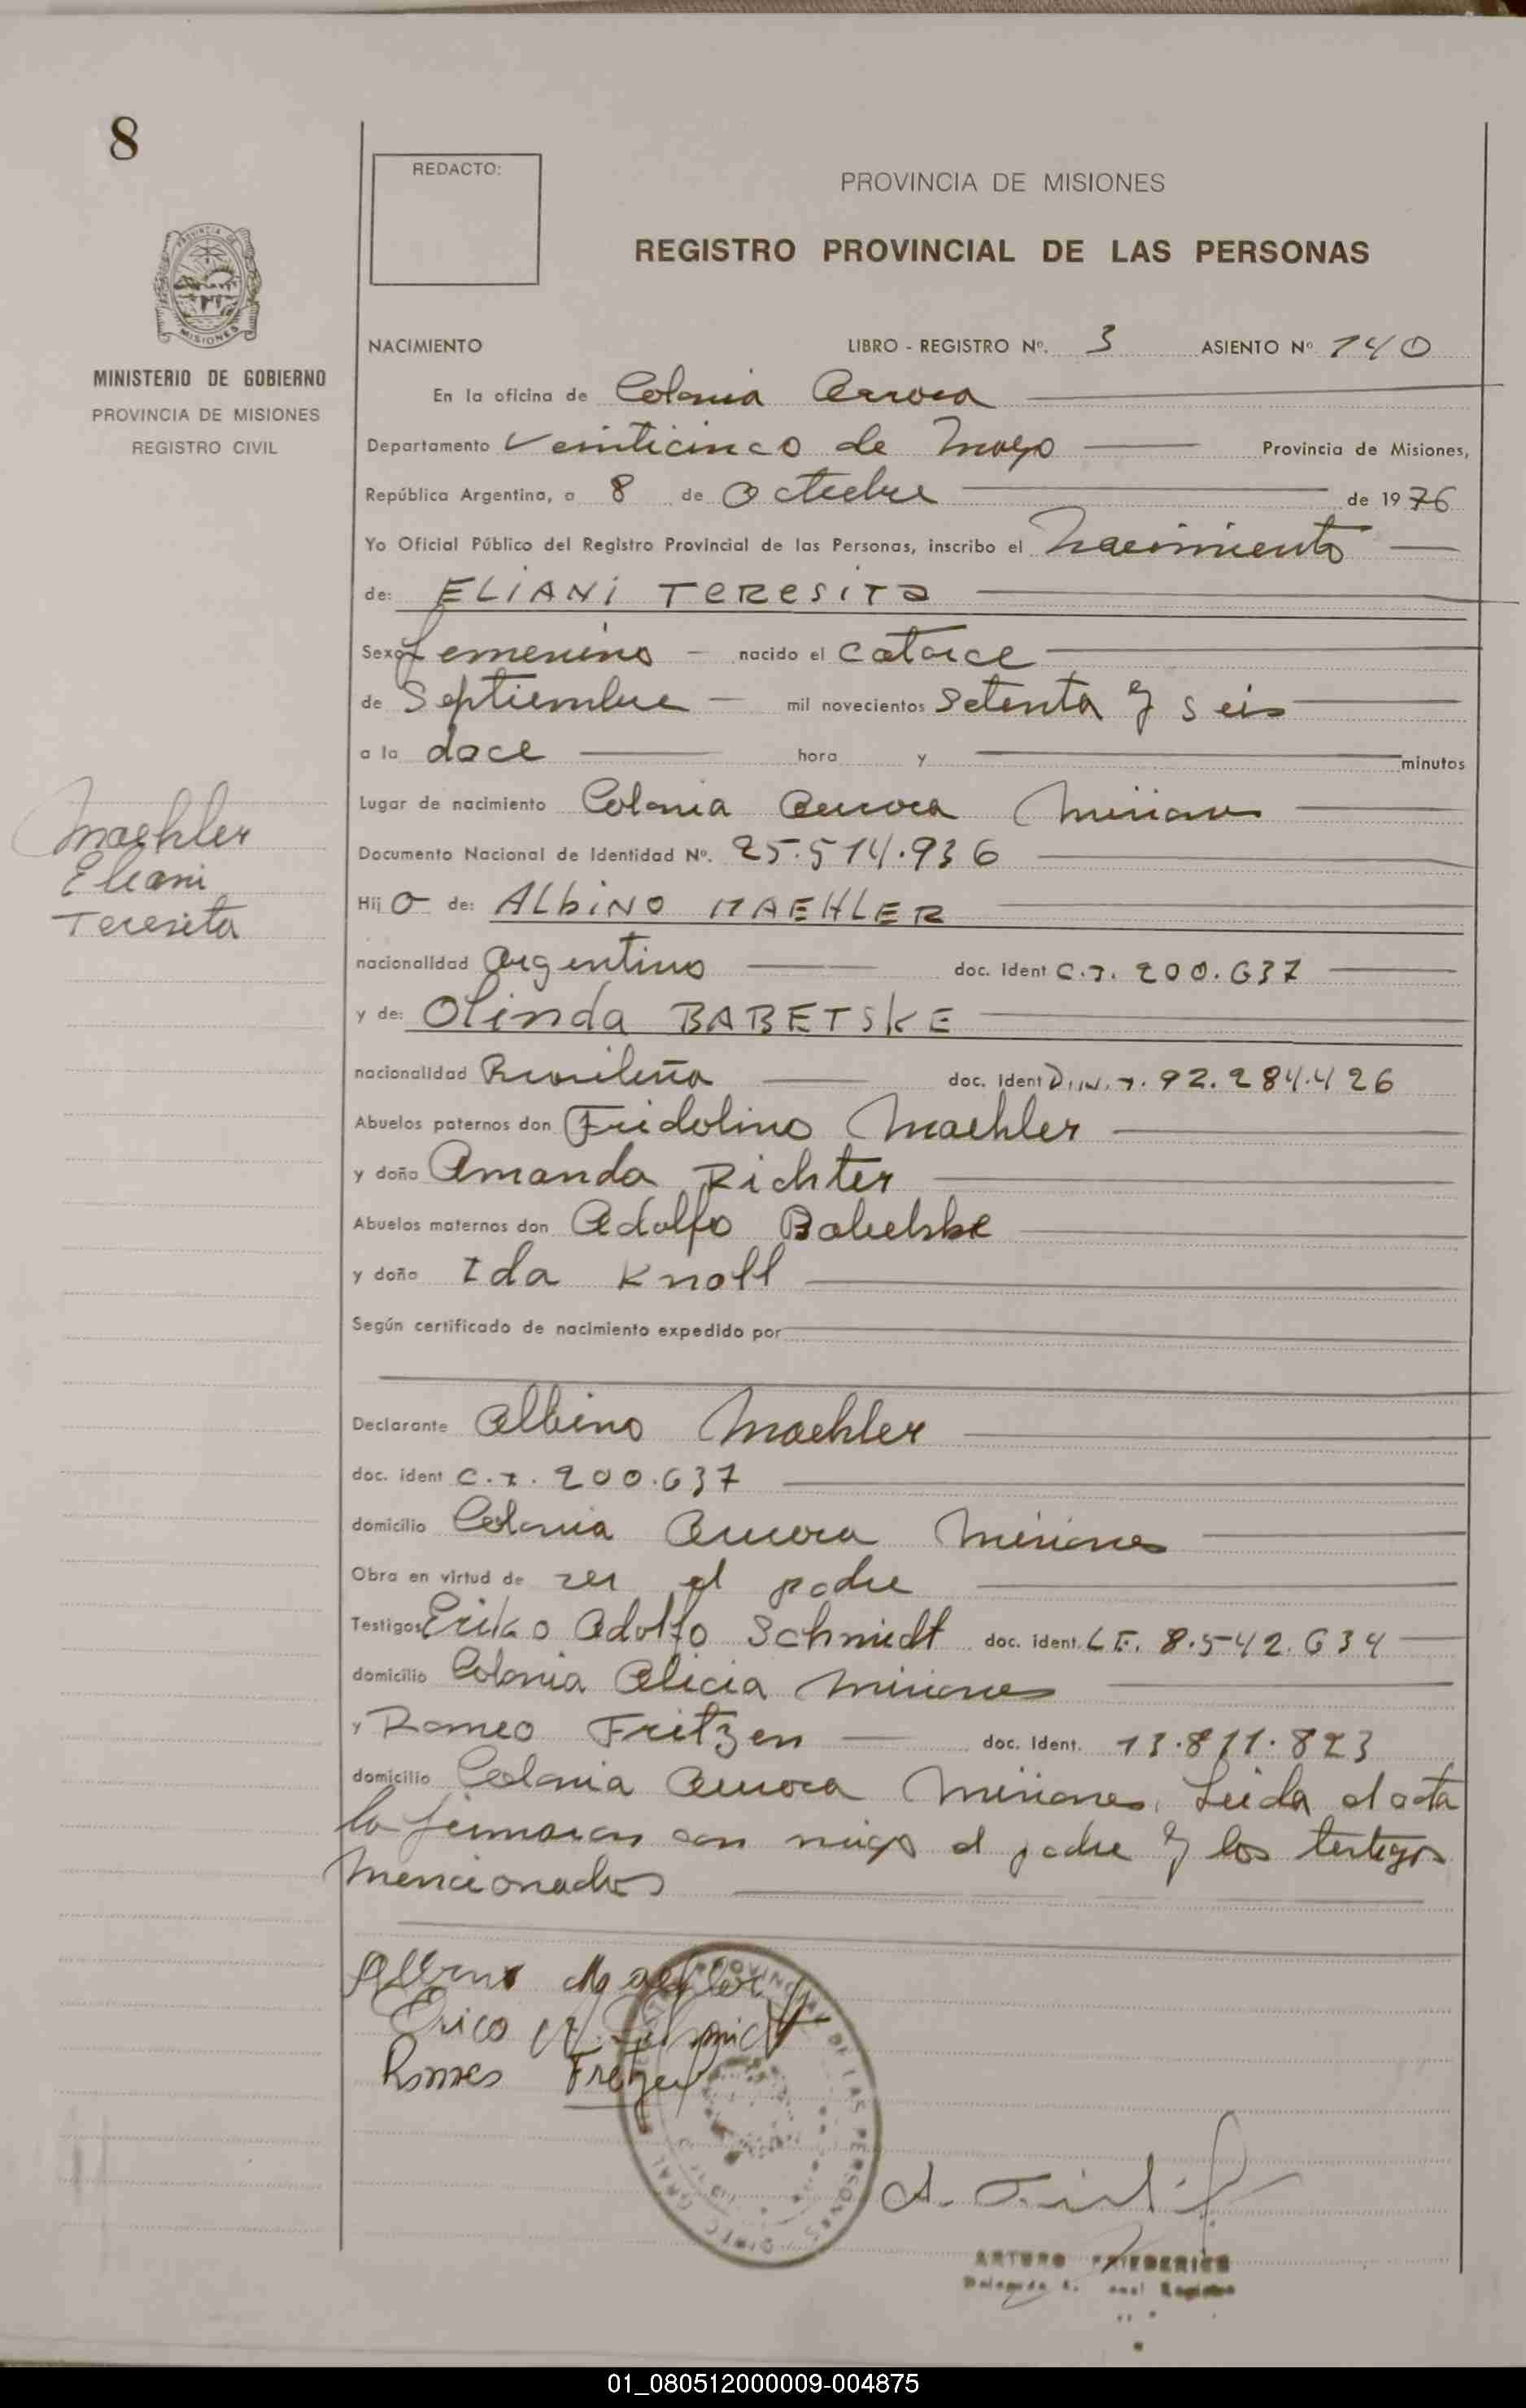 8
REDACTO:
PROVINCIA DE MISIONES
REGISTRO PROVINCIAL DE LAS PERSONAS
MINISTERIO DE GOBIERNO
PROVINCIA DE MISIONES
REGISTRO CIVIL
NACIMIENTO LIBRO - REGISTRO Nº. 3 ASIENTO Nº 140
En la oficina de Colonia Aurora
Departamento Veinticinco de Mayo Provincia de Misiones,
República Argentina, a 8 de Octubre de 1976
Yo Oficial Público del Registro Provincial de las Personas, inscribo el Nacimiento
de: ELIANI TERESITA
Sexo femenino nacido el catorce
de Septiembre mil novecientos setenta y seis
a la doce hora y minutos
Lugar de nacimiento Colonia Aurora Misiones
Maehler
Eliani
Teresita
Documento Nacional de Identidad Nº. 25.514.936
Hij O de: Albino MAEHLER
nacionalidad argentino doc. ident C.I. 200.637
y de: Olinda BABETSKE
nacionalidad Brasileña doc. ident D.N.I. 92.284.426
Abuelos paternos don Fridolino Maehler
y doña Amanda Richter
Abuelos maternos don Adolfo Babetske
y doña Ida Knoll
Según certificado de nacimiento expedido por
Declarante Albino Maehler
doc. ident C.I. 200.637
domicilio Colonia Aurora Misiones
Obra en virtud de ser el padre
Testigos Eriko Adolfo Schmidt doc. ident. L E. 8.542.634
domicilio Colonia Alicia Misiones
y Romeo Fritzen doc. Ident. 13.811.823
domicilio Colonia Aurora Misiones. Leida el acta
la firmaron con migo el padre y los testigos
mencionados
Albino Maehler
Erico A. Schmidt
Romeo Fretzen
PROVINCIAL DE LAS PERSONAS
ARTURO FRIEDERICH
01_080512000009-004875